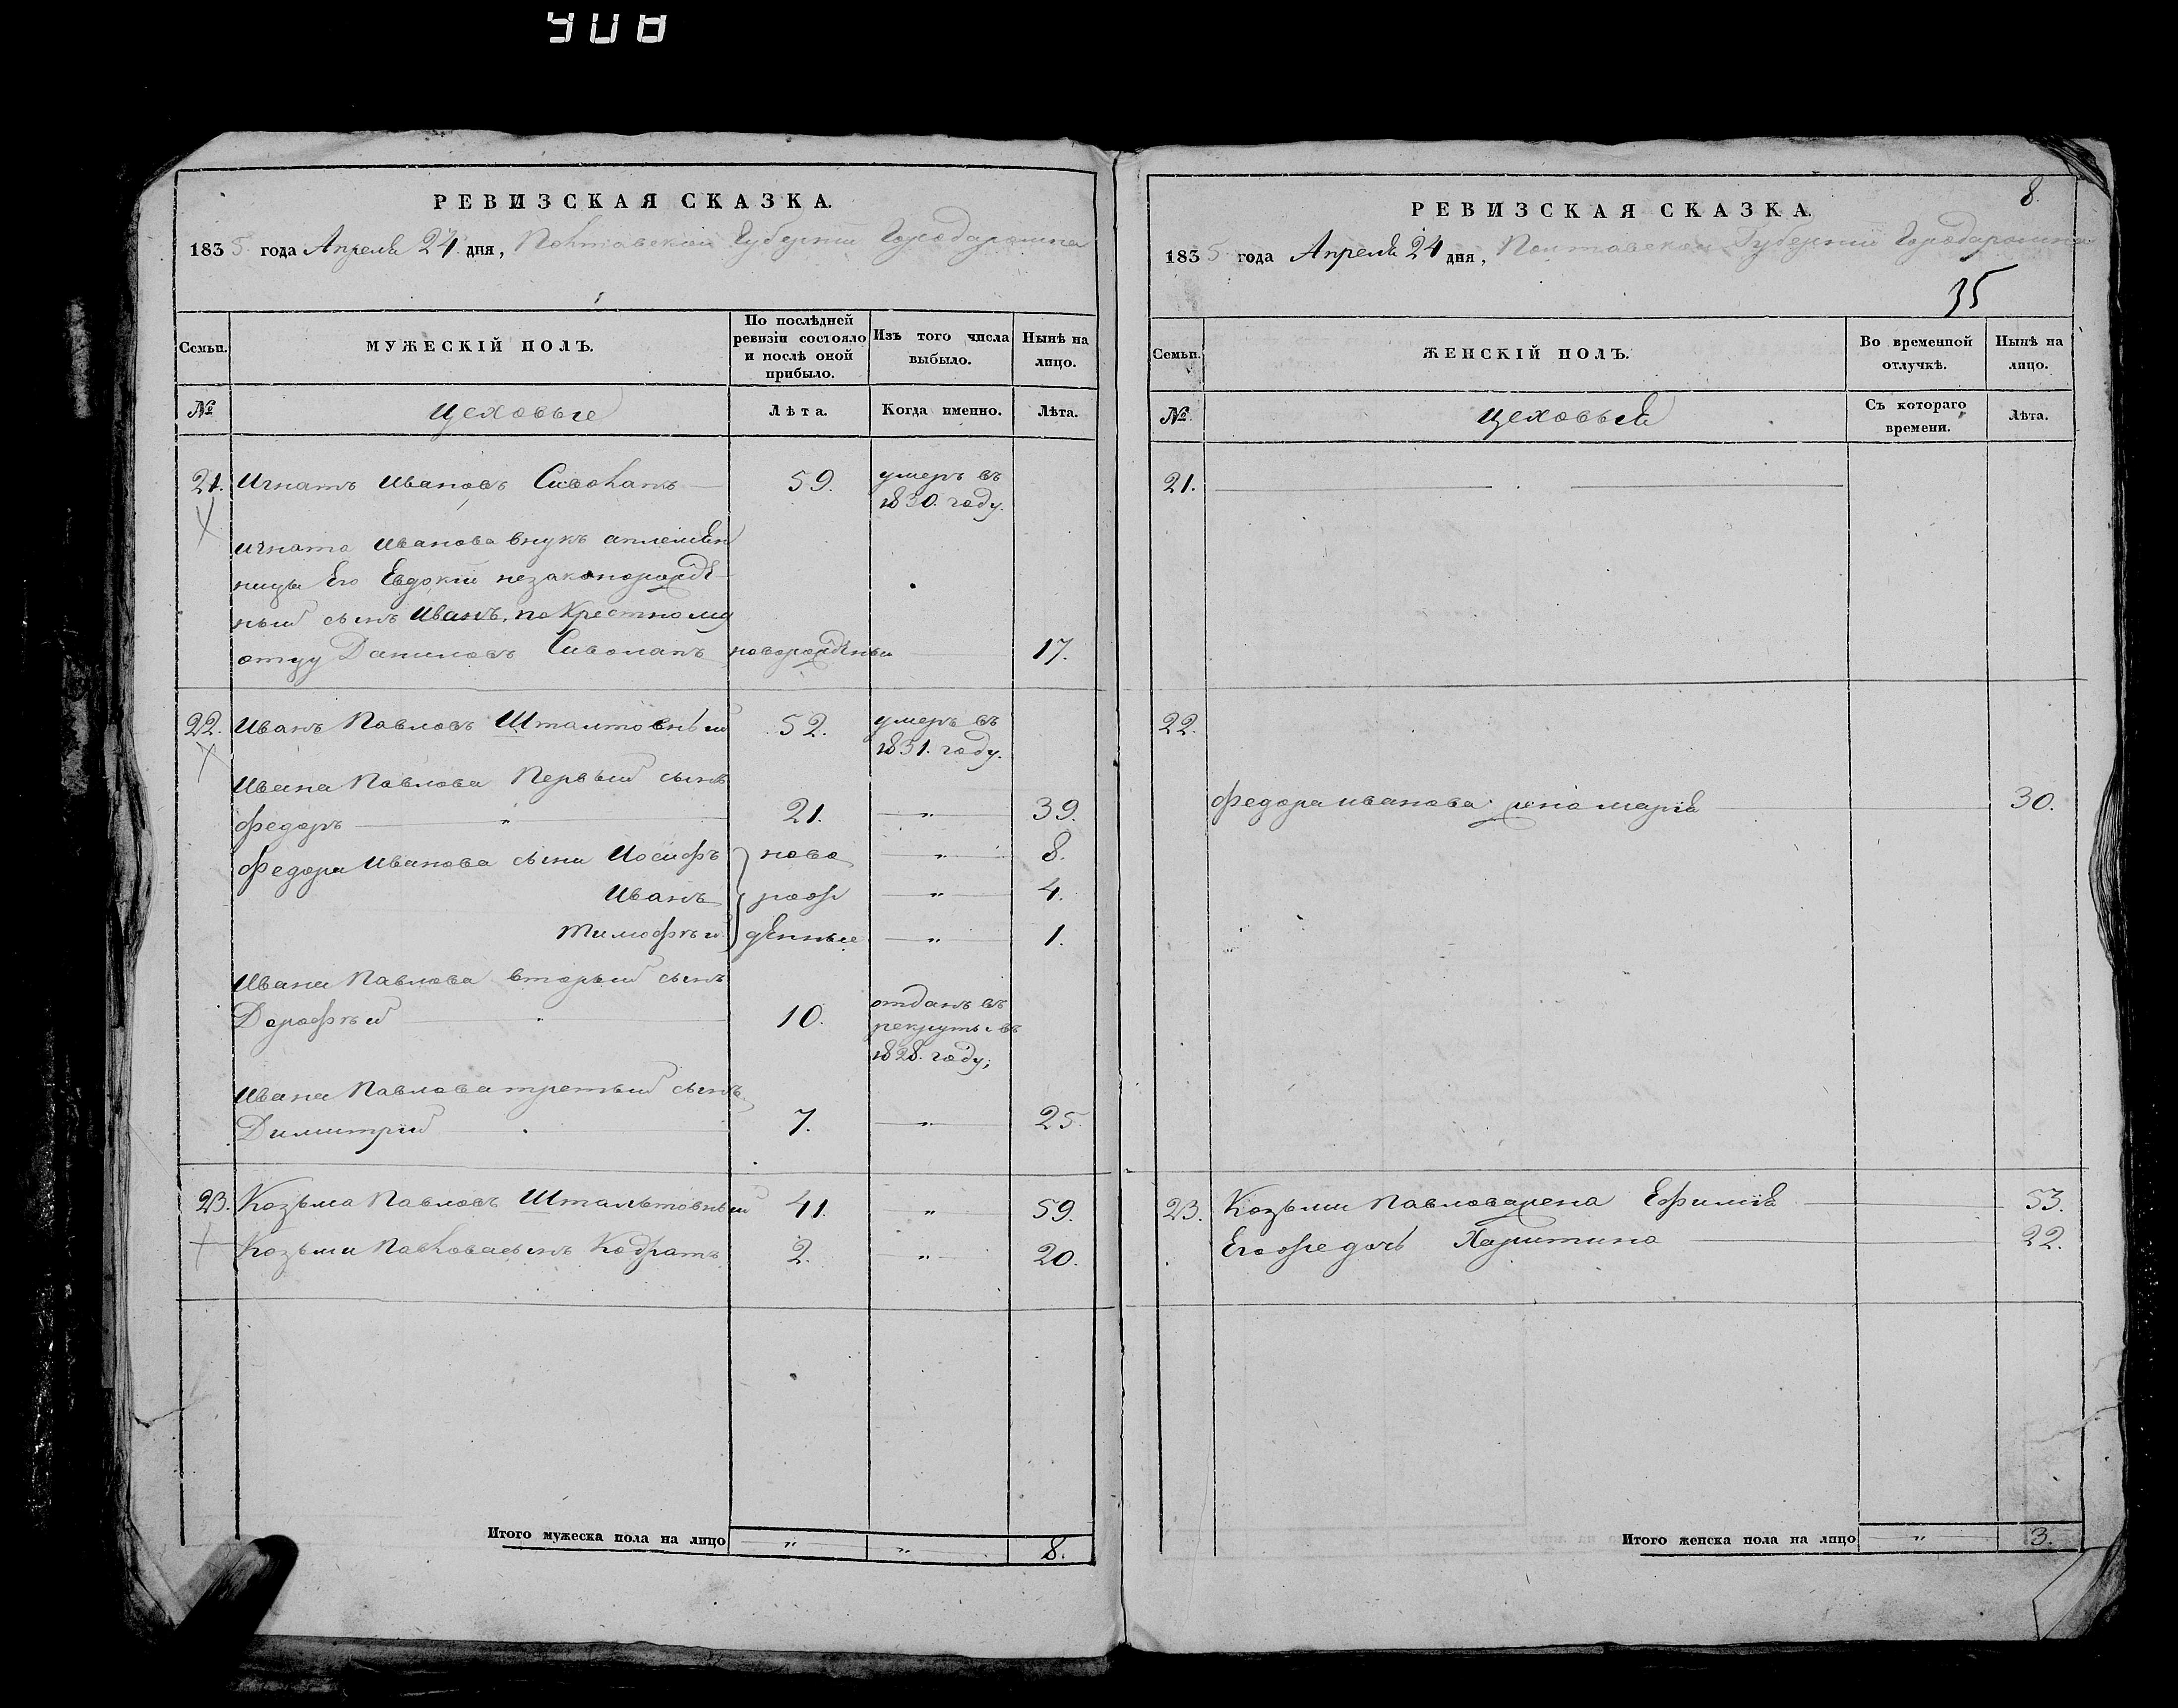 908
РЕВИЗСКАЯ СКАЗКА.
1835 года Апреля 24 дня, Полтавской Губернии Города
Семьи.
МУЖЕСКІЙ ПОЛЪ.
По послѣдней ревизіи состояло и послѣ оной прибыло.
Изъ того числа выбыло.
Нынѣ на лицо.
№
Цеховые
Лѣта.
Когда именно.
Лѣта.
21. Игнатъ Ивановъ Сиволапъ 59. умеръ въ
1830. году.
Игната Иванова внукъ аплемян
ницы Его Евдокіи незаконорожде
ный сынъ Иванъ, по Крестному
отцу Даниловъ Сиволапъ новорожденый 17.
22. Иванъ Павловъ 52. умеръ въ
1831. году.
Ивана Павлова Первый сынъ
Федоръ " 21. " 39.
Федора Иванова сыны Иосифъ ново " 8.
Иванъ рож " 4.
Тимофѣй денные " 1.
Ивана Павлова вторый сынъ
Дорофѣй " 10. отданъ въ
рекруты въ
1828. году;
Ивана Павлова третьий сынъ
Димитрий 7. " 25.
23. Козьма Павловъ 41. " 59.
Козьмы Павлова сынъ Кодратъ 2. " 20.
Итого мужеска пола на лицо " " 8.
8.
РЕВИЗСКАЯ СКАЗКА.
1835 года Апреля 24 дня, Полтавской Губернии Города
35
Семьи.
ЖЕНСКІЙ ПОЛЪ.
Во временной отлучкѣ.
Нынѣ на лицо.
№
Цеховыя
Съ котораго времени.
Лѣта.
21.
22.
Федора иванова жена марія 30.
23. Козьмы Павлова жена Ефимія 53.
Егоже дочь Харитина 22.
Итого женска пола на лицо " 3.